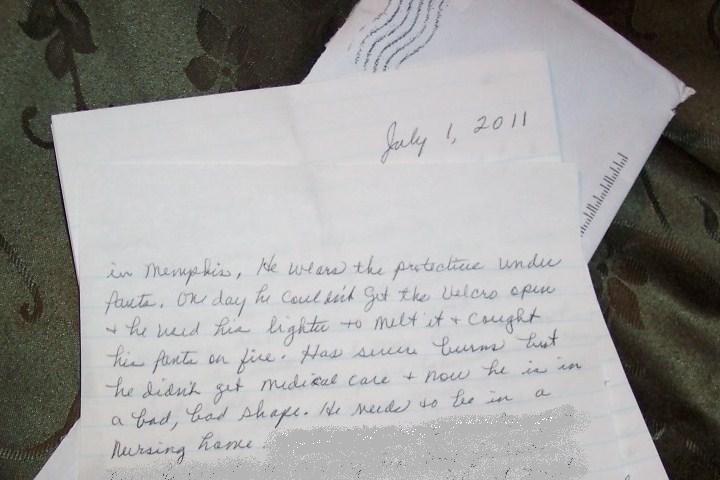 July 1, 2011
in Memphis, He wears the protective under
pants. One day he couldn't get the velcro open
+ he used his lighter to melt it + caught
his pants on fire. Has severe burns but
he didn't get medical care + now he is in
a bad, bad shape. He needs to be in a
nursing home.